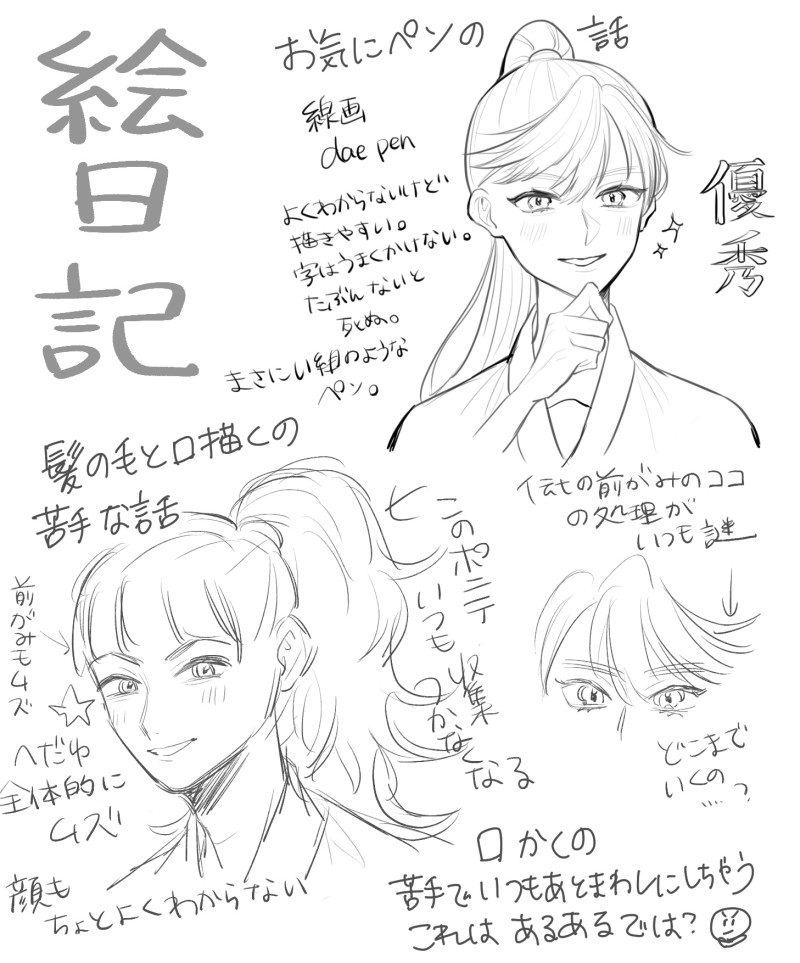 絵日記
お気にペンの話
線画
dae pen
よくわからないけど
描きやすい。
字はうまくかけない。
たぶんないと
死ぬ。
まさにい組のような
ペン。
優秀
髪の毛と口描くの
苦手な話
前がみもムズ
へだゆ
全体的に
ムズ
顔も
ちょとよくわからない
このポニテ
いつも収集
つかなくなる
ヒー
伝七の前がみのココ
の処理が
いつも謎
どこまで
いくの
....?
口かくの
苦手でいつもあとまわしにしちゃう
これは あるあるでは?